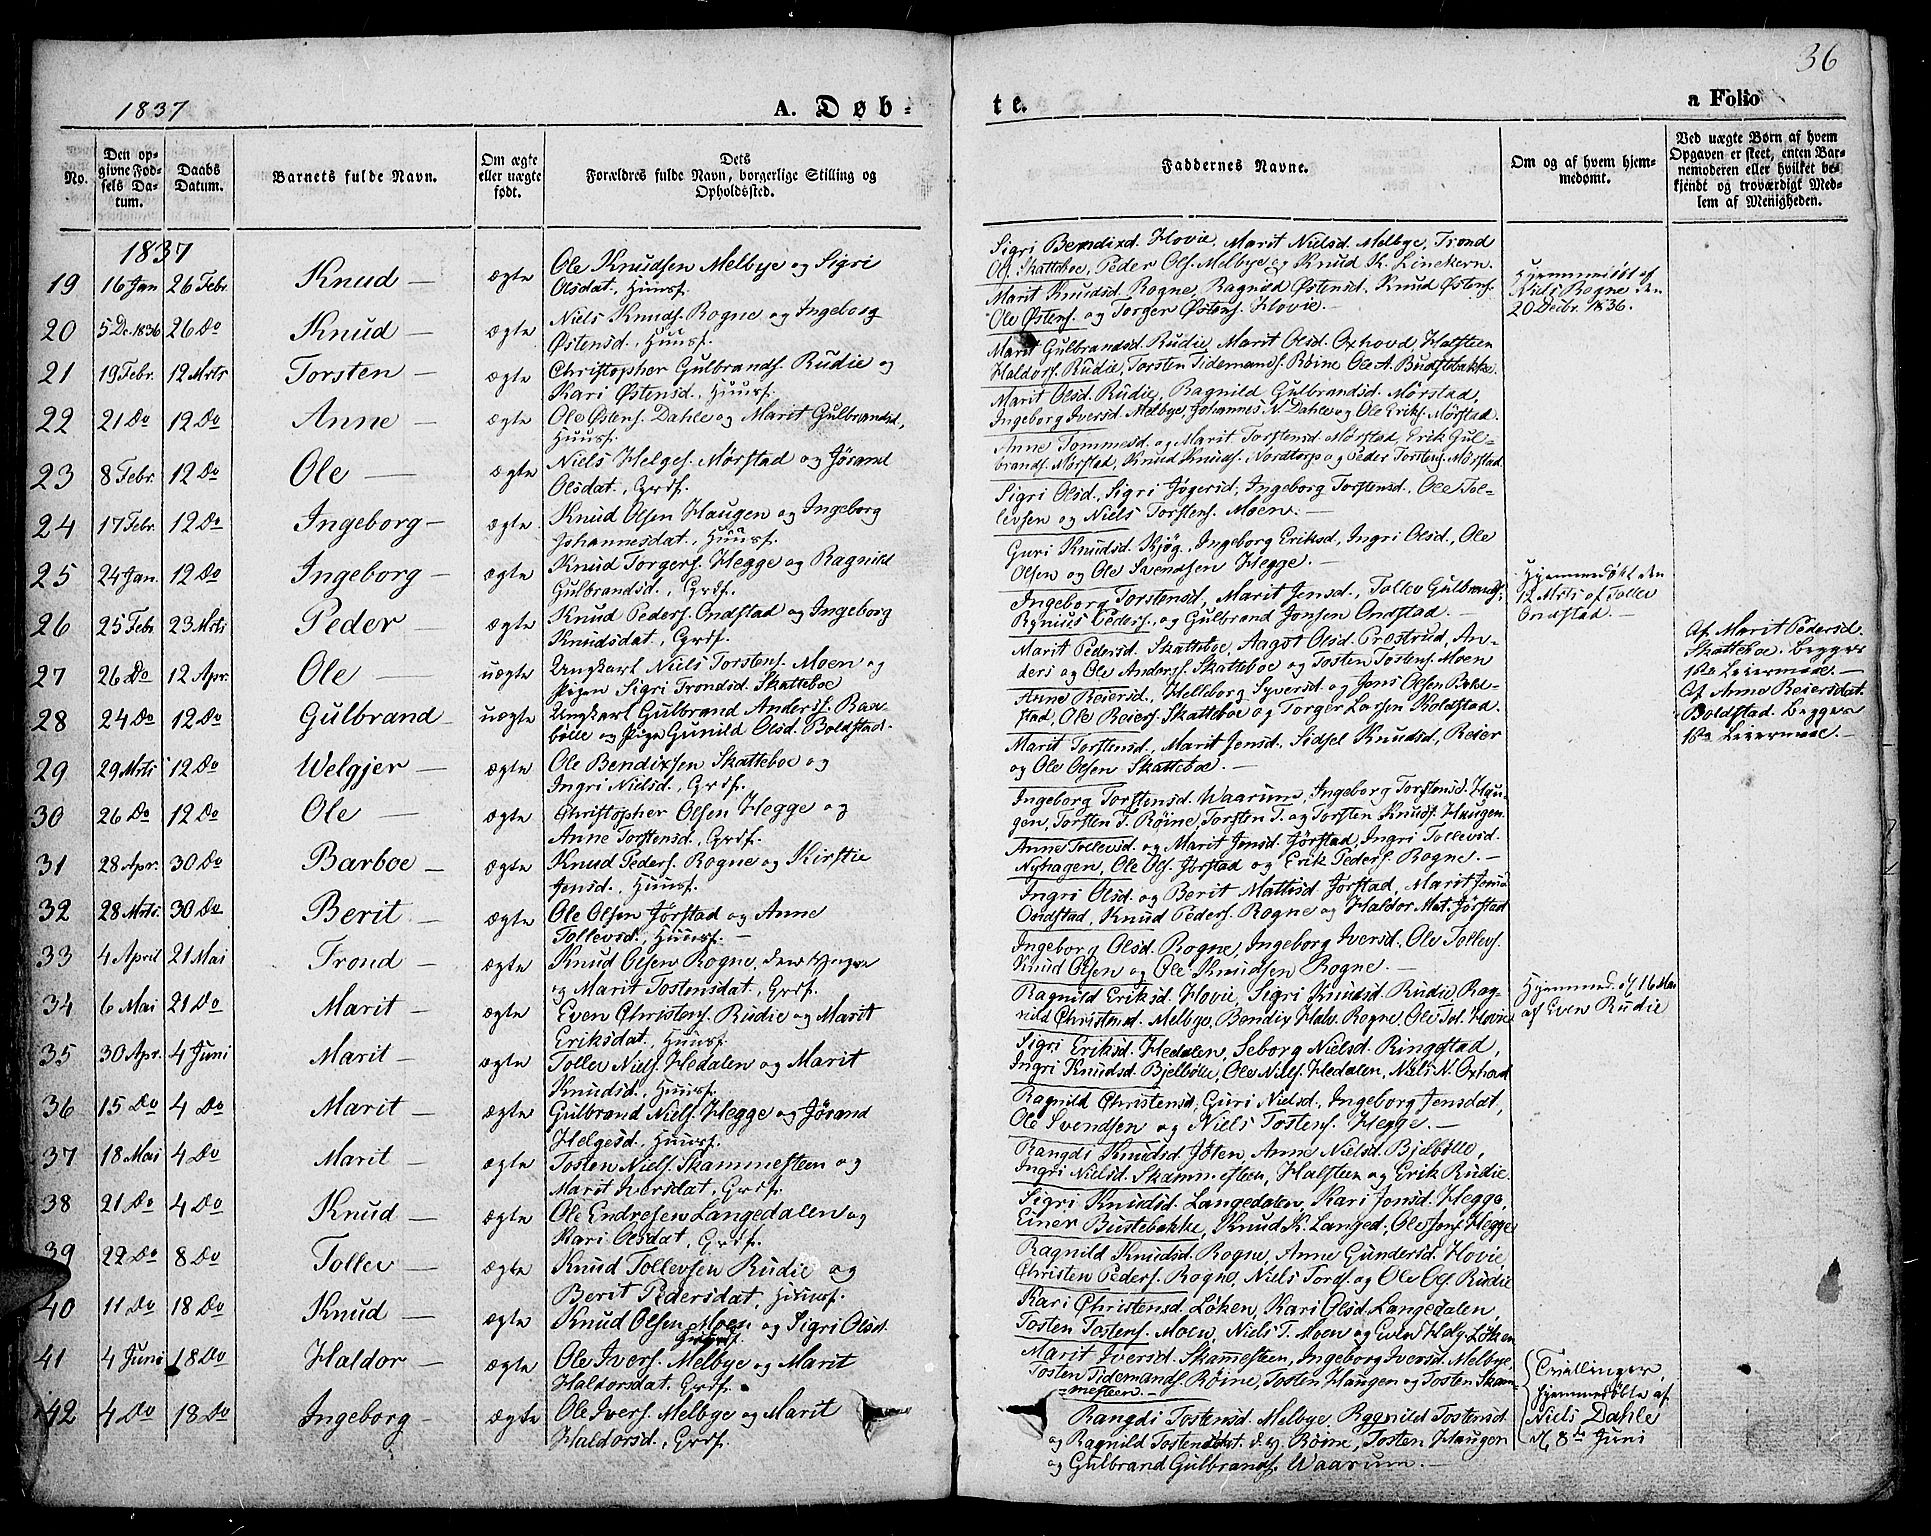 36
1837
A. Døb-
te.
a Folio
No.
Den op-
givne Fød-
sels Da-
tum.
Daabs
Datum.
Barnets fulde Navn.
Om ægte
eller uægte
født.
Dets
Forældres fulde Navn, borgerlige Stilling og
Opholdssted.
Faddernes Navne.
Om og af hvem hjem-
medømt.
Ved uægte Børn af hvem
Opgaven er skeet, enten Bar-
nemoderen eller hvilket be-
kjendt og troværdigt Med-
lem af Menigheden.
1837
19 16 Jan 26 Febr. Knud — ægte Ole Knudsen Melbye og Sigri
Olsdat., Huusf.
Sigri Bendixd. Hovie, Marit Nielsd. Melbye, Trond
Ol. Skatteboe, Peder Ols. Melbye og Knud K. Linekern.
20 5 De. 1836 26 Do Knud — ægte Niels Knuds. Rogne og Ingeborg
Østensd., Huusf.
Marit Knudsd. Rogne, Ragnild Østensd. Knud Østens.
Ole Østens. og Torger Østens. Hovie. —
Hjemmedøbt af
Niels Rogne den
20 Decbr. 1836.
21 19 Febr. 12 Mrts Torsten — ægte Christopher Gulbrands. Rudie og
Kari Østensd., Huusf.
Marit Gulbrandsd. Rudie, Marit Olsd. Oxhovd Halsteen
Haldors. Rudie, Torsten Tidemands. Røine Ole A. Budstebakke.
22 21 Do 12 Do Anne — ægte Ole Østens. Dahle og Marit Gulbrandsd,
Huusf.
Marit Olsd. Rudie, Ragnild Gulbrandsd. Mørstad,
Ingeborg Iversd. Melbye, Johannes N. Dahle og Ole Eriks. Mørstad.
23 8 Febr. 12 Do Ole — ægte Niels Helges. Mørstad og Jørand
Olsdat., Grdf.
Anne Tommesd. og Marit Torstensd. Mørstad, Erik Gul-
brands. Mørstad, Knud Knuds. Nordtorp og Peder Torstens. Mørstad
24 17 Febr. 12 Do Ingeborg — ægte Knud Olsen Haugen og Ingeborg
Johannesdat., Huusf.
Sigri Olsd., Sigri Jøgersd, Ingeborg Torstensd., Ole Tol-
levsen og Niels Torstens. Moen. —
25 24 Jan. 12 Do Ingeborg — ægte Knud Torgers. Hegge og Ragnild
Gulbrandsd., Grdf.
Guri Knudsd. Kjøg, Ingeborg Eriksd, Ingri Olsd., Ole
Olsen og Ole Svendsen Hegge. —
26 25 Febr. 23 Mrts Peder — ægte Knud Peders. Ondstad og Ingeborg
Knudsdat., Grdf.
Ingeborg Torstensd, Marit Jensd., Tollev Gulbrands,
Rynius Peders. og Gulbrand Jonsen Ondstad.
Hjemmedøbt den
12 Mrts af Tollev
Ondstad. —
27 26 Do 12 Apr. Ole — uægte Ungkarl Niels Torstens. Moen og
Pigen Sigri Trondsd. Skatteboe
Marit Pedersd. Skatteboe, Aagot Olsd. Præstrud, An-
ders og Ole Anders. Skatteboe og Tosten Tostens. Moen
Af Marit Pedersd.
Skatteboe. Begges
1ste Leiermaal. —
28 24 Do 12 Do Gulbrand — uægte Ungkarl Gulbrand Anders. Rax
bølle og Pige Gunild Olsd. Boldstad.
Anne Reiersd., Helleborg Syversd. og Jens Olsen Bold-
stad, Ole Reiers. Skatteboe og Torger Larsen Boldstad.
Af Anne Reiersdat.
Boldstad. Begges
1ste Leiermaal. —
29 29 Mrts 12 Do Welgjer — ægte Ole Bendixsen Skatteboe og
Ingri Nielsd., Grdf.
Marit Torstensd., Marit Jensd., Sidsel Knudsd, Reier
og Ole Olsen Skatteboe. —
30 26 Do 12 Do Ole — ægte Christopher Olsen Hegge og
Anne Torstensd., Grdf.
Ingeborg Torstensd. Waarum, Ingeborg Torstensd. Hau-
gen, Torsten T. Røine, Torsten T. og Torsten Knuds. Haugen.
31 28 Apr. 30 Do Barboe — ægte Knud Peders. Rogne og Kirstie
Jensd., Huusf.
Anne Tollevsd. og Marit Jensd. Jørstad, Ingri Tollevsd.
Nyhagen, Ole Ols. Jørstad og Erik Peders. Rogne. —
32 28 Mrts. 30 Do Berit — ægte Ole Olsen Jørstad og Anne
Tollevsd., Huusf. —
Ingri Olsd. og Berit Mathisd. Jørstad, Marit Jensd
Ondstad, Knud Peders. Rogne og Haldor Mat. Jørstad
33 4 April 21 Mai Trond — ægte Knud Olsen Rogne, den Yngre
og Marit Tostensdat., Grdf.
Ingeborg Olsd. Rogne, Ingeborg Iversd., Ole Tollevs.
Knud Olsen og Ole Knudsen Rogne. —
34 6 Mai 21 Do Marit — ægte Even Christens. Rudie og Marit
Eriksdat., Huusf.
Ragnild Eriksd. Hovie, Sigri Knudsd. Rudie, Rag-
nild Christensd. Melbye, Bendix Halv. Rogne, Ole Tol. Hovie
Hjemmed. d. 16 Mai
af Even Rudie
35 30 Apr. 4 Juni Marit — ægte Tollev Niels. Hedalen og Marit
Knudsd., Huusf.
Sigri Eriksd. Hedalen, Seborg Nielsd. Ringstad,
Ingri Knudsd. Bjelbølle, Ole Niels. Hedalen, Niels N. Oxhovd
36 15 Do 4 Do Marit — ægte Gulbrand Niels. Hegge og Jørand
Helgesd., Huusf.
Ragnild Christensd, Guri Nielsd., Ingeborg Jensdat,
Ole Svendsen og Niels Tostens. Hegge. —
37 18 Mai 4 Do Marit — ægte Tosten Niels. Skammesteen og
Marit Iversdat, Grdf.
Rangdi Knudsd. Jøten, Anne Nielsd. Bjelbølle,
Ingri Nielsd. Skammesteen, Halsteen og Erik Rudie.
38 21 Do 4 Do Knud — ægte Ole Endresen Langedalen og
Kari Olsdat, Grdf.
Sigri Knudsd. Langedalen, Kari Jonsd. Hegge,
Einer Bustebakke, Knud K. Langed., Ole Jens. Hegge
39 22 Do 8 Do Tollev — ægte Knud Tollevsen Rudie og
Berit Pedersdat, Huusf.
Ragnild Knudsd. Rogne, Anne Gundersd. Hovie,
Christen Peders. Rogne, Niels Tords. og Ole Ol. Rudie
40 11 Do 18 Do Knud — ægte Knud Olsen Moen og Sigri Olsd.
Kari Christensd. Løken, Kari Olsd. Langedalen,
Tosten Tostens. Moen, Niels T. Moen og Even Halv. Løken
41 4 Juni 18 Do Haldor — ægte Ole Ivers. Melbye og Marit
Haldorsdat. Grdf.
Marit Iversd. Skammesteen, Ingeborg Iversd. Melbye,
Tosten Tidemands. Røine, Tosten Haugen og Tosten Skam-
mesteen. —
Tvillinger,
hjemmedøbte af
Niels Dahle
d. 8de Juni
42 4 Do 18 Do Ingeborg — ægte Ole Ivers. Melbye og Marit
Haldorsd., Grdf.
Rangdi Tostensd. Melbye, Ragnild Tostensd
og Ragnild Tostensdat. d. y. Røine, Tosten Haugen
og Gulbrand Gulbrands. Waarum. —